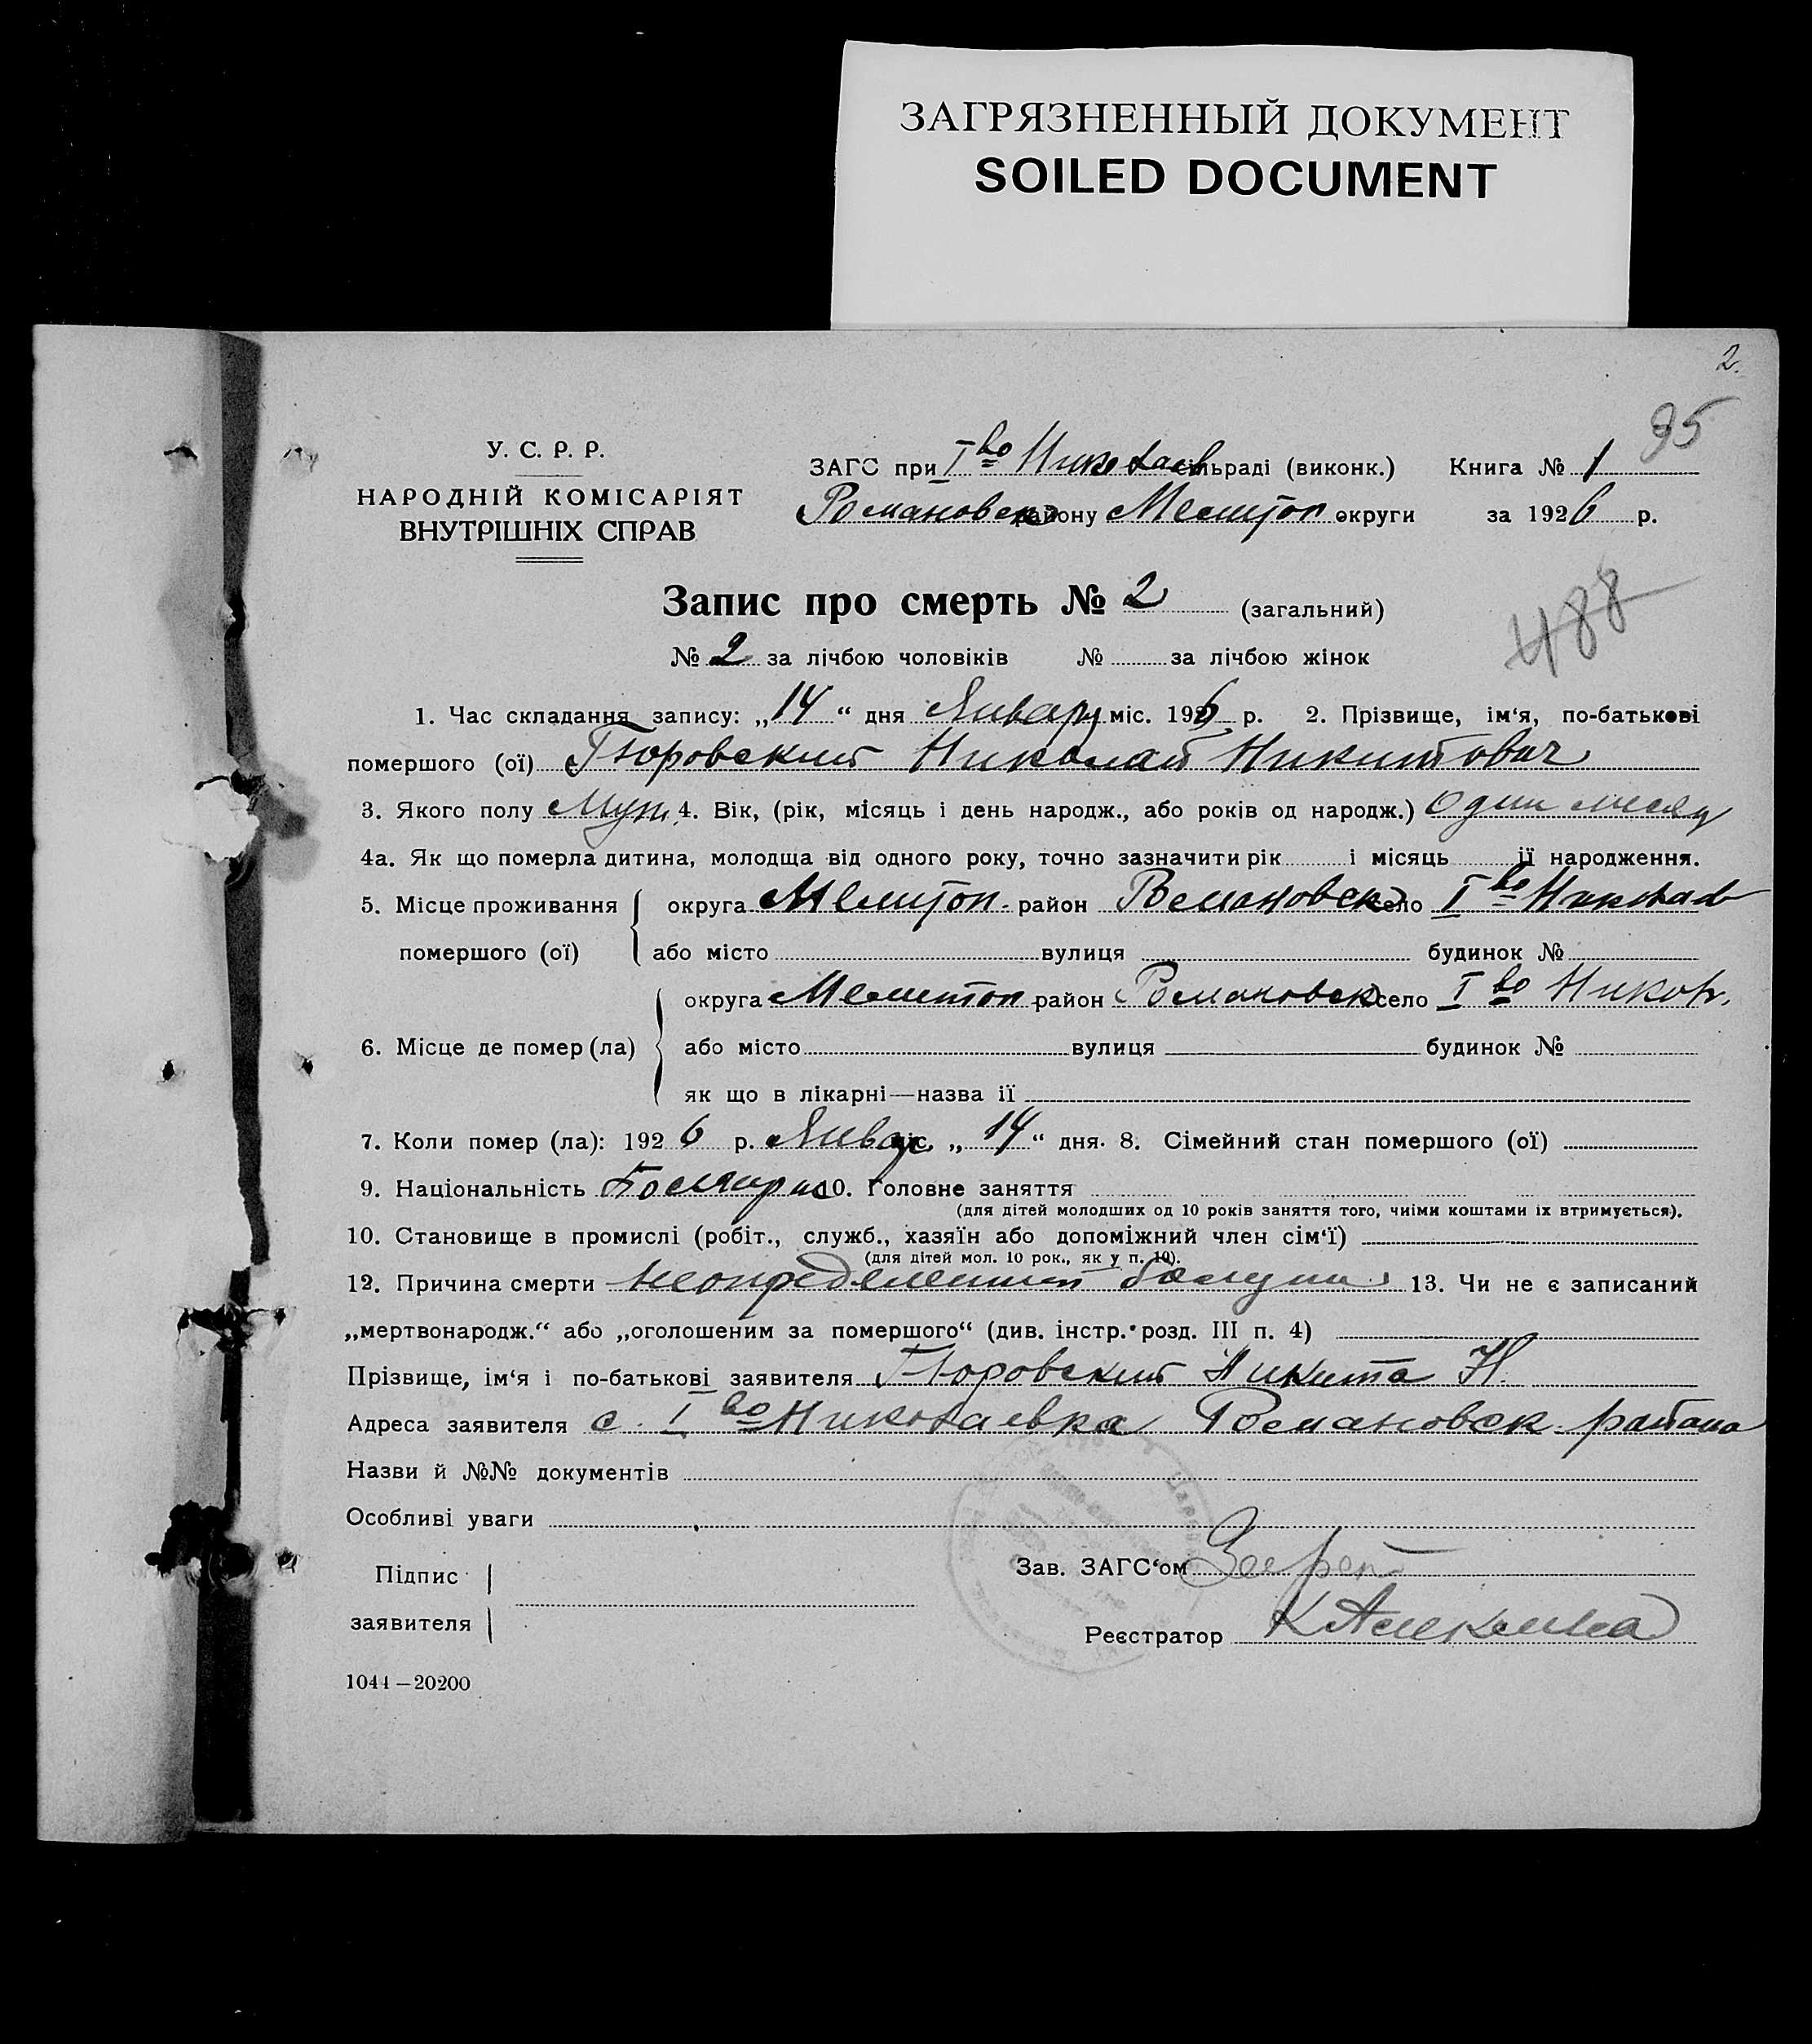 ЗАГРЯЗНЕННЫЙ ДОКУМЕНТ
SOILED DOCUMENT
2.
95
У. С. Р. Р.
НАРОДНІЙ КОМІСАРІЯТ
ВНУТРІШНІХ СПРАВ
ЗАГС при I во Николаев сільраді (виконк.) Книга № 1
Романовск району Мелитоп округи за 1926 р.
Запис про смерть № 2 (загальний)
488
№ 2 за лічбою чоловіків № за лічбою жінок
1. Час складання запису: „14“ дня Январ міс. 1926 р. 2. Прізвище, ім‘я, по-батькові
помершого (ої) Николай Никитович
3. Якого полу Муж. 4. Вік, (рік, місяць і день народж., або років од народж.) один месяц
4а. Як що померла дитина, молодща від одного року, точно зазначити рік і місяць її народження.
5. Місце проживання округа Мелитоп. район Романовск село I во Николаев
помершого (ої) або місто вулиця будинок №
округа Мелитоп район Романовск село I во Никол.
6. Місце де помер (ла) або місто вулиця будинок №
як що в лікарні—назва ії
7. Коли помер (ла): 1926 р. Январ міс. „14“ дня. 8. Сімейний стан помершого (ої)
9. Національність 10. Головне заняття
(для дітей молодших од 10 років заняття того, чиіми коштами іх втримується).
10. Становище в промислі (робіт., служб., хазяїн або допоміжний член сім‘ї)
(для дітей мол. 10 рок., як у п. 10).
12. Причина смерти 13. Чи не є записаний
„мертвонародж.“ або „оголошеним за помершого“ (див. інстр. розд. III п. 4)
Прізвище, ім‘я і по-батькові заявителя Никита Н.
Адреса заявителя с. I во Николаевка Романовск. района
Назви й №№ документів
Особливі уваги
Підпис Зав. ЗАГС‘ом
заявителя Реєстратор
1044—20200